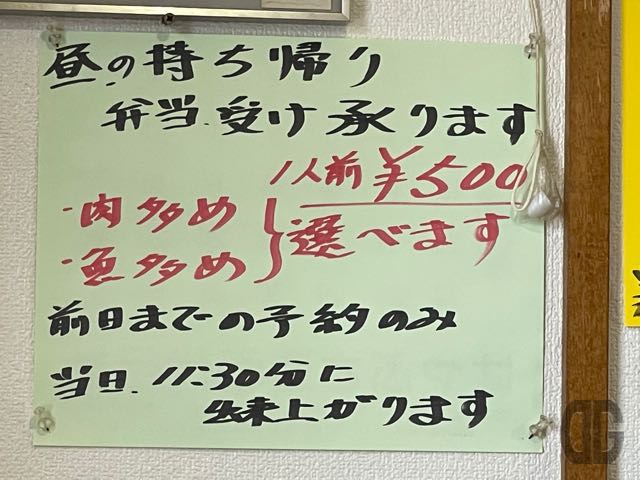 昼の持ち帰り
弁当.受け承ります
1人前¥500
・肉多め
・魚多め
選べます
前日までの予約のみ
当日.11:30分に
出来上がります
DG